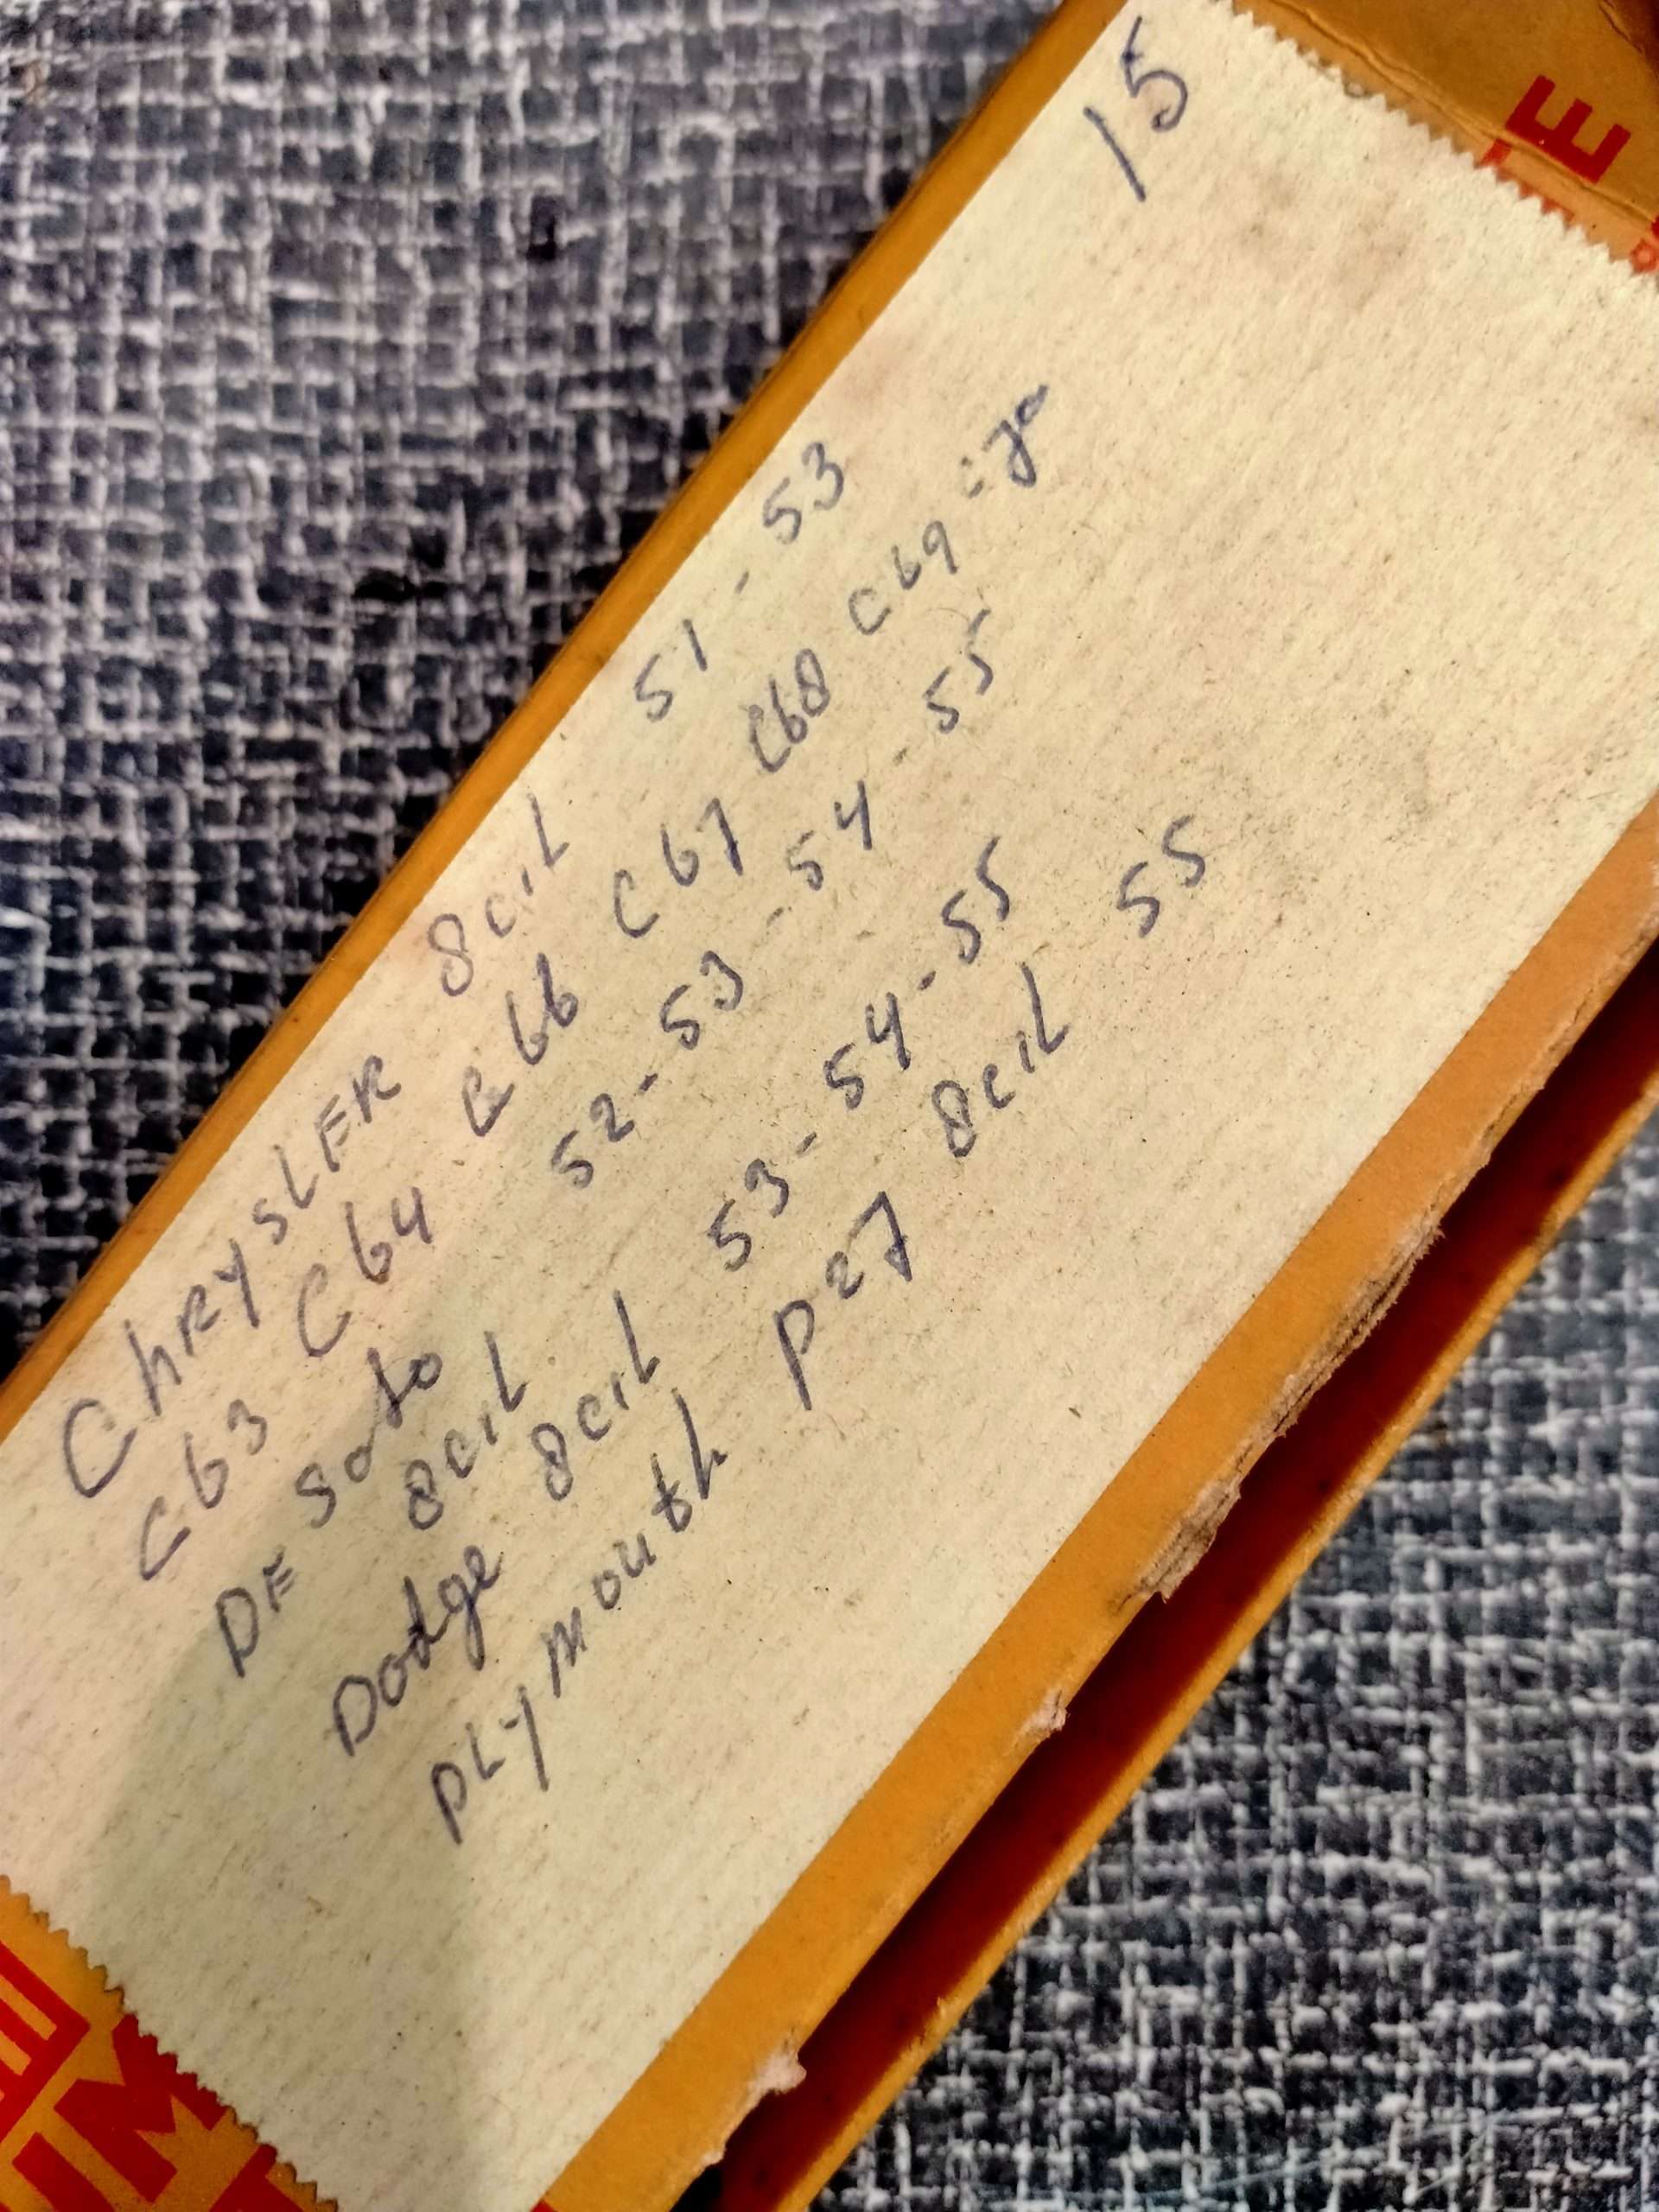 15
ChRYSLER 8ciL 51-53
C63 C64 C66 C67 C68 C69 =70
DE Soto 52-53-54-55
8ciL
Dodge 8ciL 53-54-55
PLYmouth P27 8ciL 55
E